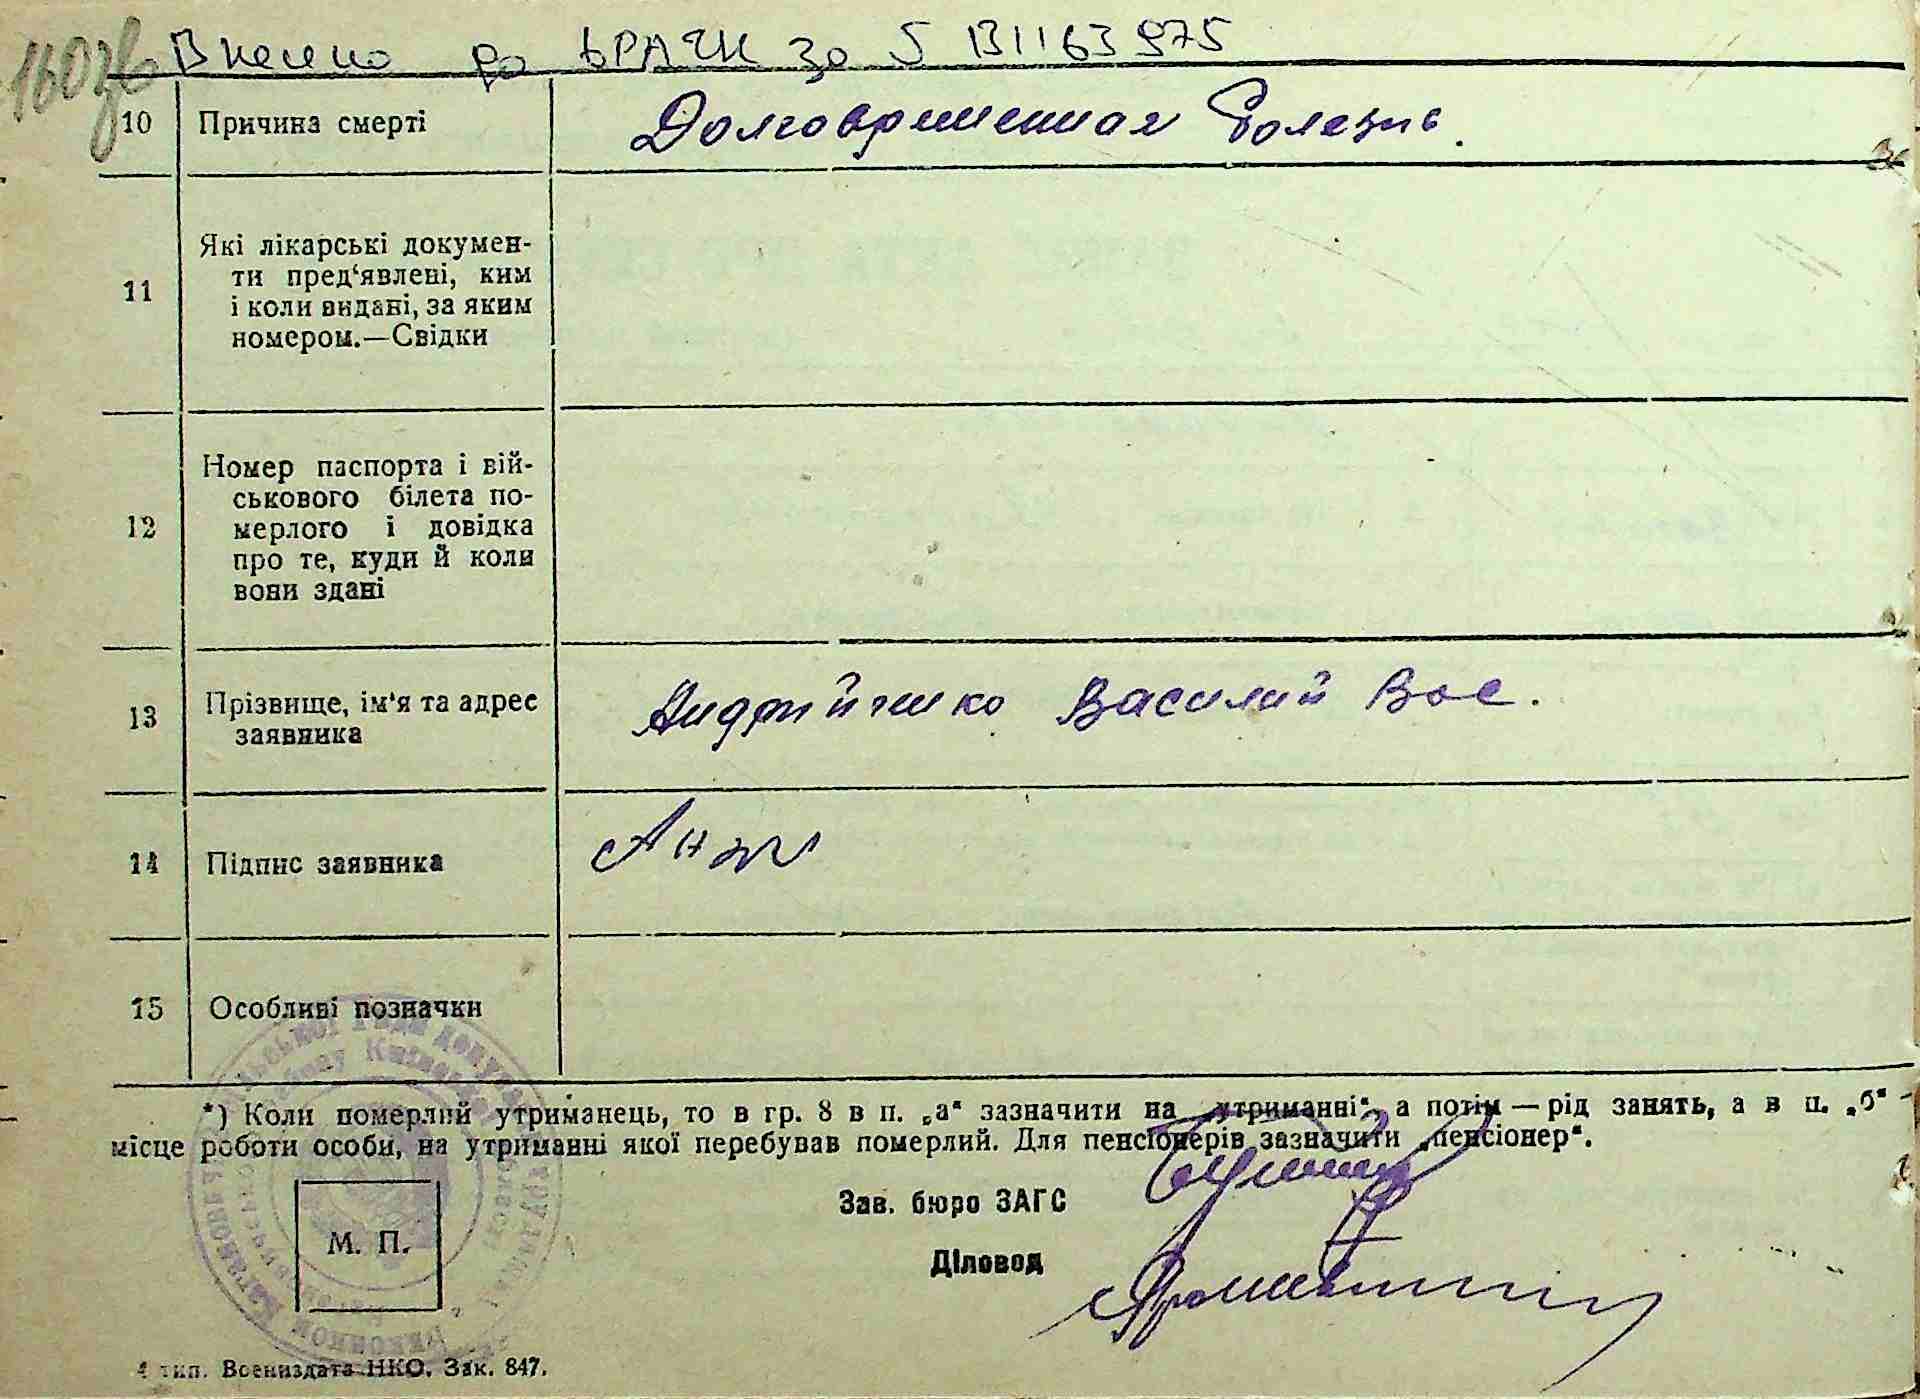 Внесено до ДРАЦС за № 131163975
160зв
10 Причина смерті Долговременная болезнь.
11 Які лікарські докумен-
ти пред‘явлені, ким
і коли видані, за яким
номером.—Свідки
12 Номер паспорта і вій-
ськового білета по-
мерлого і довідка
про те, куди й коли
вони здані
13 Прізвище, ім‘я та адрес
заявника
Андрийченко Василий Вас.
14 Підпис заявника
15 Особливі позначки
*) Коли померлий утриманець, то в гр. 8 в п. „а“ зазначити на „утриманні“, а потім — рід занять, а в п. „б“ -
місце роботи особи, на утриманні якої перебував померлий. Для пенсіонерів зазначити „пенсіонер“.
Зав. бюро ЗАГС
М. П.
Діловод
4 тип. Воениздата НКО. Зак. 847.